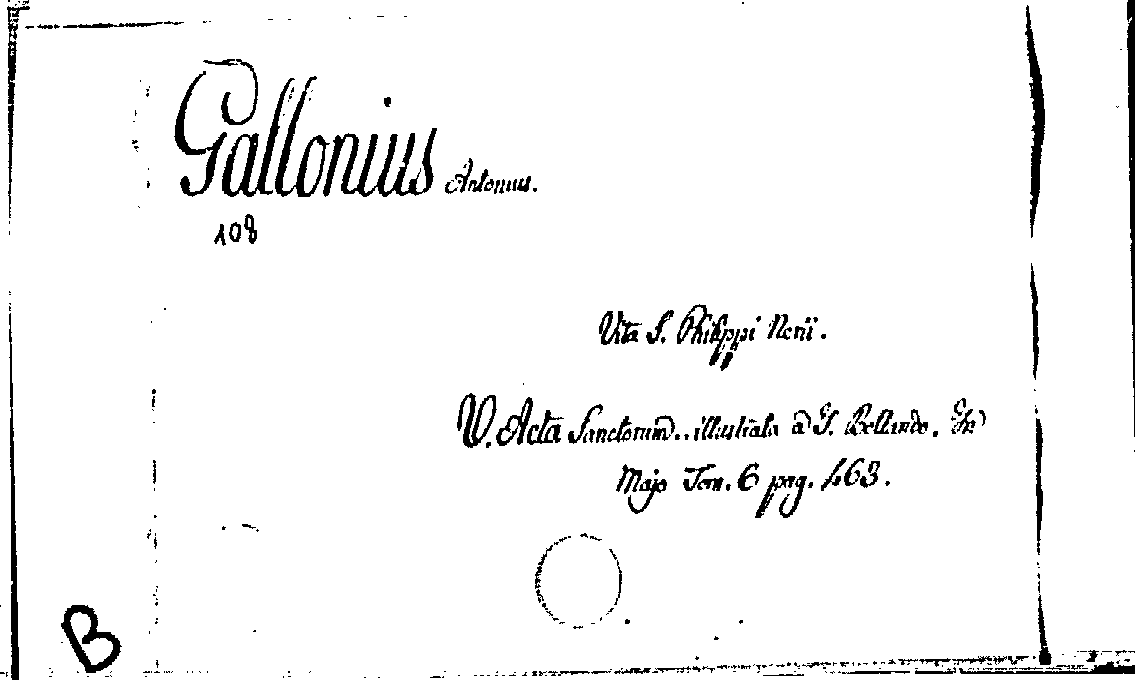 Gallonius Antonius.
108
Vita S. Philippi Nerii.
V. Acta Sanctorum.. illustrata à J. Bollando. In
Majo Tom. 6 pag. 463.
B